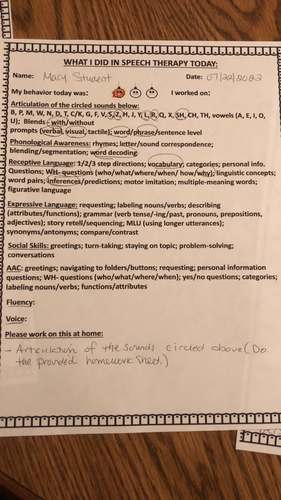 WHAT I DID IN SPEECH THERAPY TODAY:
Name: Macy Student Date: 07/22/2022
My behavior today was: I worked on:
Articulation of the circled sounds below:
B, P, M, W, N, D, T, C/K, G, F, V, S, Z, H, J, Y, L, R, Q, X, SH, CH, TH, vowels (A, E, I, O,
U); Blends - with/without
prompts (verbal, visual, tactile); word/phrase/sentence level
Phonological Awareness: rhymes; letter/sound correspondence;
blending/segmentation; word decoding
Receptive Language: 1/2/3 step directions; vocabulary; categories; personal info.
Questions; WH- questions (who/what/where/when/ how/why); linguistic concepts;
word pairs; inferences/predictions; motor imitation; multiple-meaning words;
figurative language
Expressive Language: requesting; labeling nouns/verbs; describing
(attributes/functions); grammar (verb tense/-ing/past, pronouns, prepositions,
adjectives); story retell/sequencing; MLU (using longer utterances);
synonyms/antonyms; compare/contrast
Social Skills: greetings; turn-taking; staying on topic; problem-solving;
conversations
AAC: greetings; navigating to folders/buttons; requesting; personal information
questions; WH- questions (who/what/where/when); yes/no questions; categories;
labeling nouns/verbs; functions/attributes
Fluency:
Voice:
Please work on this at home:
- Articulation of the sounds circled above (Do
the provided homework sheet.)